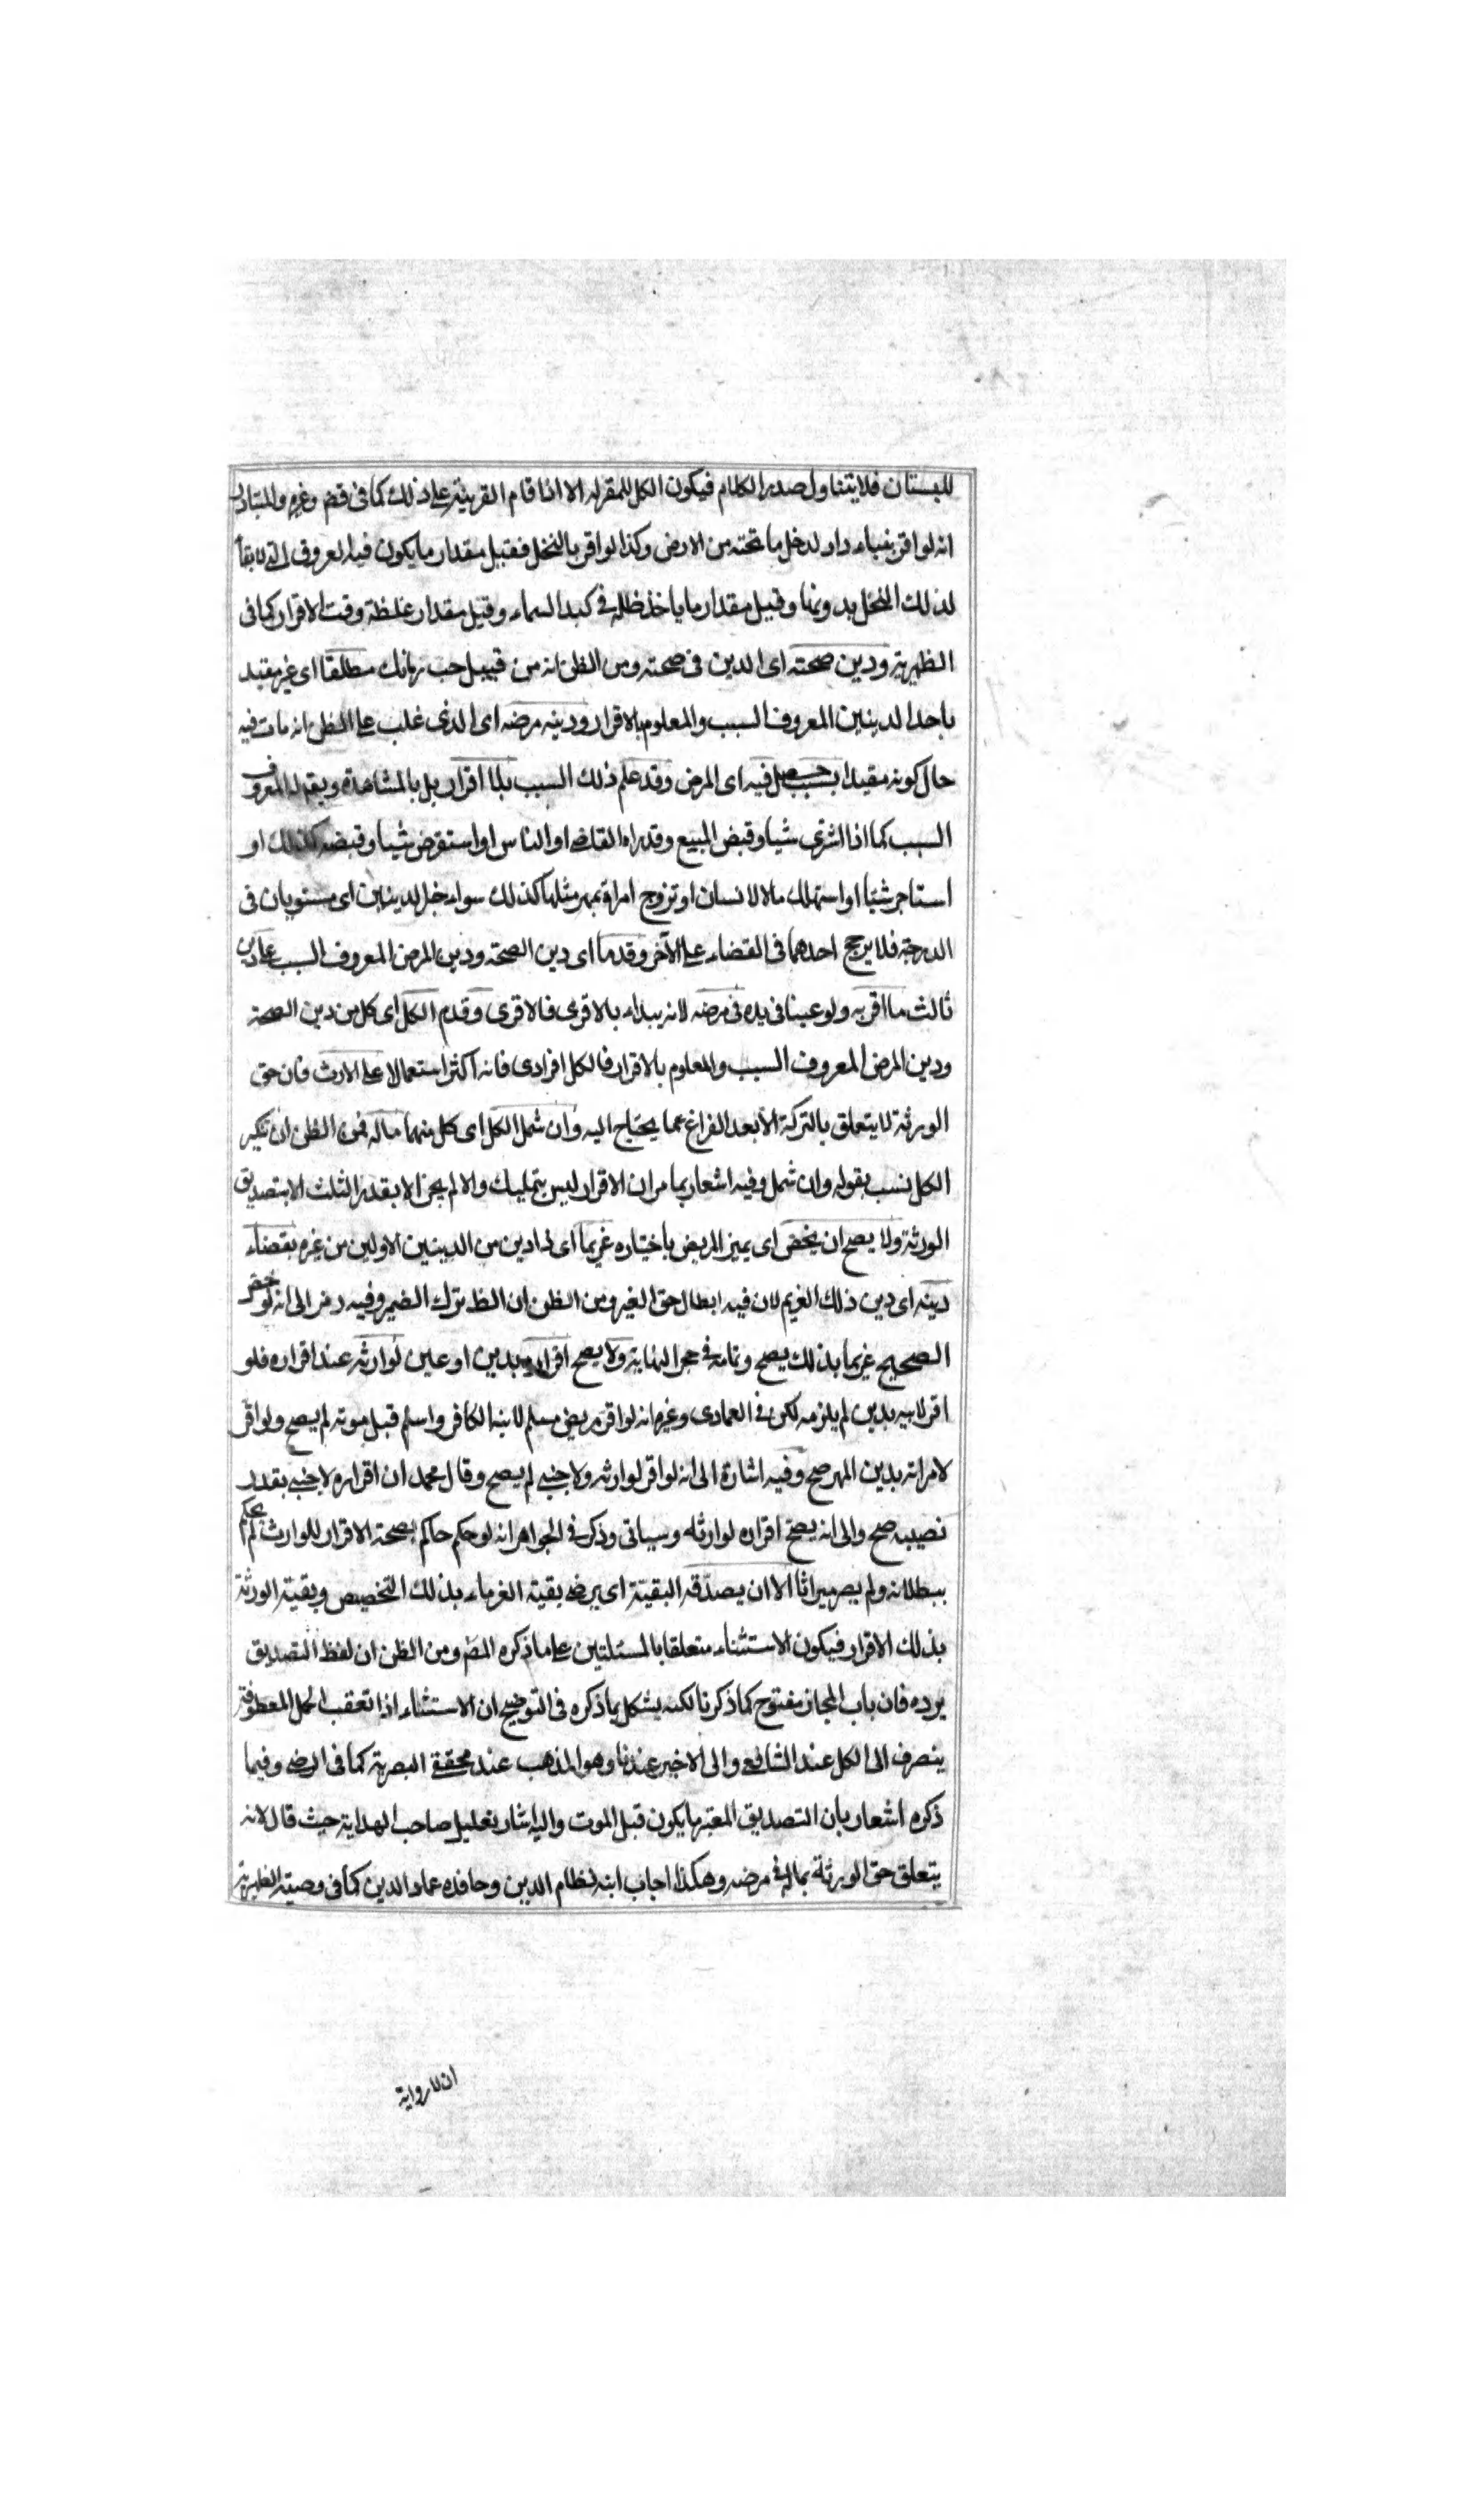 للبستان فلا يتناول صدر الكلام فيكون الكل للمقر له الا اذا قام القرينة على ذلك كما في قض وغيره والمتبادر
انه لو اقر ببناء دار لدخل ما تحته من الارض وكذا لو اقر بالنخل فقيل مقدار ما يكون فيه العروق التي لا بقاء
لذلك النخل بدونها وقيل مقدار ما ياخذ ظله في كبد السماء وقيل مقدار غلظة وقت الاقرار كما في
الظهيرية ودين صحته اى الدين في صحته ومن الظن انه من قبيل حب رمانك مطلقا اى غير مقيد
باحد الدينين المعروف السبب والمعلوم بالاقرار ودين مرضه اى الذى غلب على الظن انه مات فيه
حال كونه مقيدا بسبب حصل فيه اى المرض وقد علم ذلك السبب بلا اقرار بل بالمشاهدة ويقر له المعروف
السبب كما اذا اشترى شيا وقبض المبيع وقد راه القاضي او الناس او استقرض شيا وقبضه كذلك او
استاجر شيئا او استهلك مالا لانسان او تزوج امراة بمهر مثلها كذلك سواء خبر لدينين اى مستويان في
الدرجة فلا يرجح احدهما في القضاء على الآخر وقدما اى دين الصحة ودين المرض المعروف السبب على دين
ثالث ما اقر به ولو عينا في يده في مرضه لانه يبداء بالاقرى فالاقرى وقدم الكل اى كل من دين الصحة
ودين المرض المعروف السبب والمعلوم بالاقرار فالكل افرادى فانه اكثر استعمالا على الارث فان حق
الورثة لا يتعلق بالتركة الا بعد الفراغ عما يحتاج اليه وان شمل الكل اى كل منهما ماله فمن الظن ان تنكير
الكل نسب بقوله وان شمل وفيه اشعار بما مر ان الاقرار ليس بتمليك والا لم يجز الا بقدر الثلث الا بتصديق
الورثة ولا يصح ان يخص اى يميز المريض باختياره غريما اى ذا دين من الدينين الاولين من غيره بقضاء
دينه اى دين ذلك الغريم لان فيه ابطال حق الغير ومن الظن ان الظ ترك الضمير وفيه رمز الى انه لو خص
الصحيح غريما بذلك يصح وتمامه في حجر النهاية ولا يصح اقراره بدين او عين لوارثه عند اقراره فلو
اقر لابيه بدين لم يلزمه لكن في العمادى وغيره انه لو اقر مريض مسلم لابنه الكافر واسلم قبل موته لم يصح ولو اقر
لامراته بدين المهر صح وفيه اشارة الى انه لو اقر لوارثه ولاجنبي لم يصح وقال محمد ان اقراره لاجنبي بقدر
نصيبه صح والى انه يصح اقراره لوارثه وسياتى وذكر في الجواهر انه لو حكم حاكم بصحة الاقرار للوارث لم يحكم
ببطلانه ولم يصر ميراثا الا ان يصدقه البقية اى يرضى بقية الغرماء بذلك التخصيص وبقية الورثة
بذلك الاقرار فيكون الاستثناء متعلقا بالمسئلتين على ما ذكره المص ومن الظن ان لفظ التصديق
يرده فان باب المجاز مفتوح كما ذكرنا لكنه يشكل بما ذكره في التوضيح ان الاستثناء اذا تعقب الجمل المعطوفة
ينصرف الى الكل عند الشافعي والى الاخير عندنا وهو المذهب عند محققي البصرية كما في الرضى وفيما
ذكره اشعار بان التصديق المعتبر ما يكون قبل الموت واليه اشار تعليل صاحب الهداية حيث قال لانه
يتعلق حق الورثة بماله في مرضه وهكذا اجاب ابنه نظام الدين وحافده عماد الدين كما في وصية الظهيرية
ان للرواية